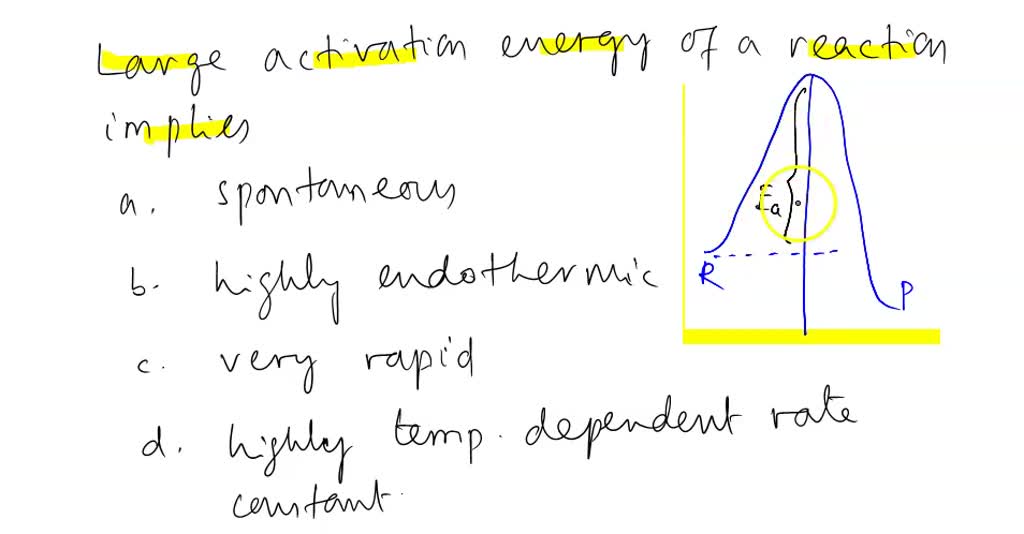 Large activation energy of a reaction
implies
a. spontaneous
b. highly endothermic
c. very rapid
d. highly temp. dependent rate
constant.
Ea
R
P